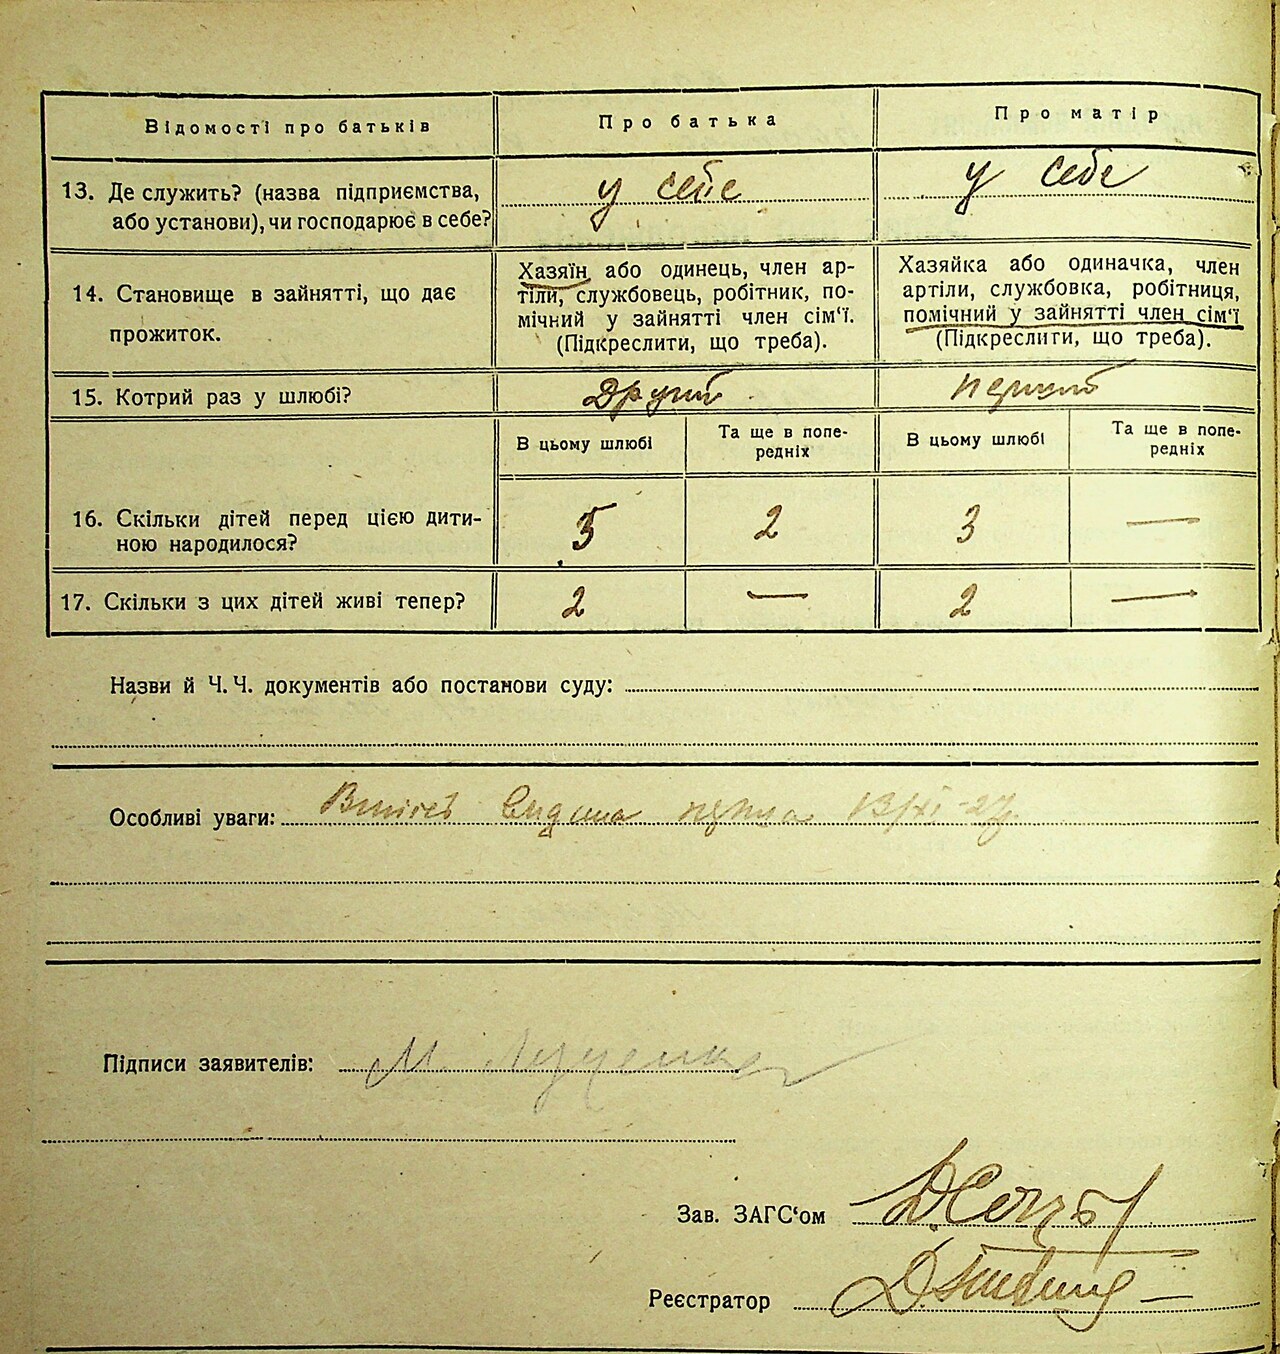 Відомості про батьків
Про батька
Про матір
13. Де служить? (назва підприємства,
або установи), чи господарює в себе?
у себе
у себе
14. Становище в зайнятті, що дає
прожиток.
Хазяїн або одинець, член ар-
тіли, службовець, робітник, по-
мічний у зайнятті член сім'ї.
(Підкреслити, що треба).
Хазяйка або одиначка, член
артіли, службовка, робітниця,
помічний у зайнятті член сім'ї
(Підкреслити, що треба).
15. Котрий раз у шлюбі?
Другий
перший
В цьому шлюбі
Та ще в попе-
редніх
В цьому шлюбі
Та ще в попе-
редніх
16. Скільки дітей перед цією дити-
ною народилося?
2
3
—
17. Скільки з цих дітей живі тепер?
2
—
2
—
Назви й Ч. Ч. документів або постанови суду:
Особливі уваги:
Підписи заявителів: М.
Зав. ЗАГС'ом
Реєстратор